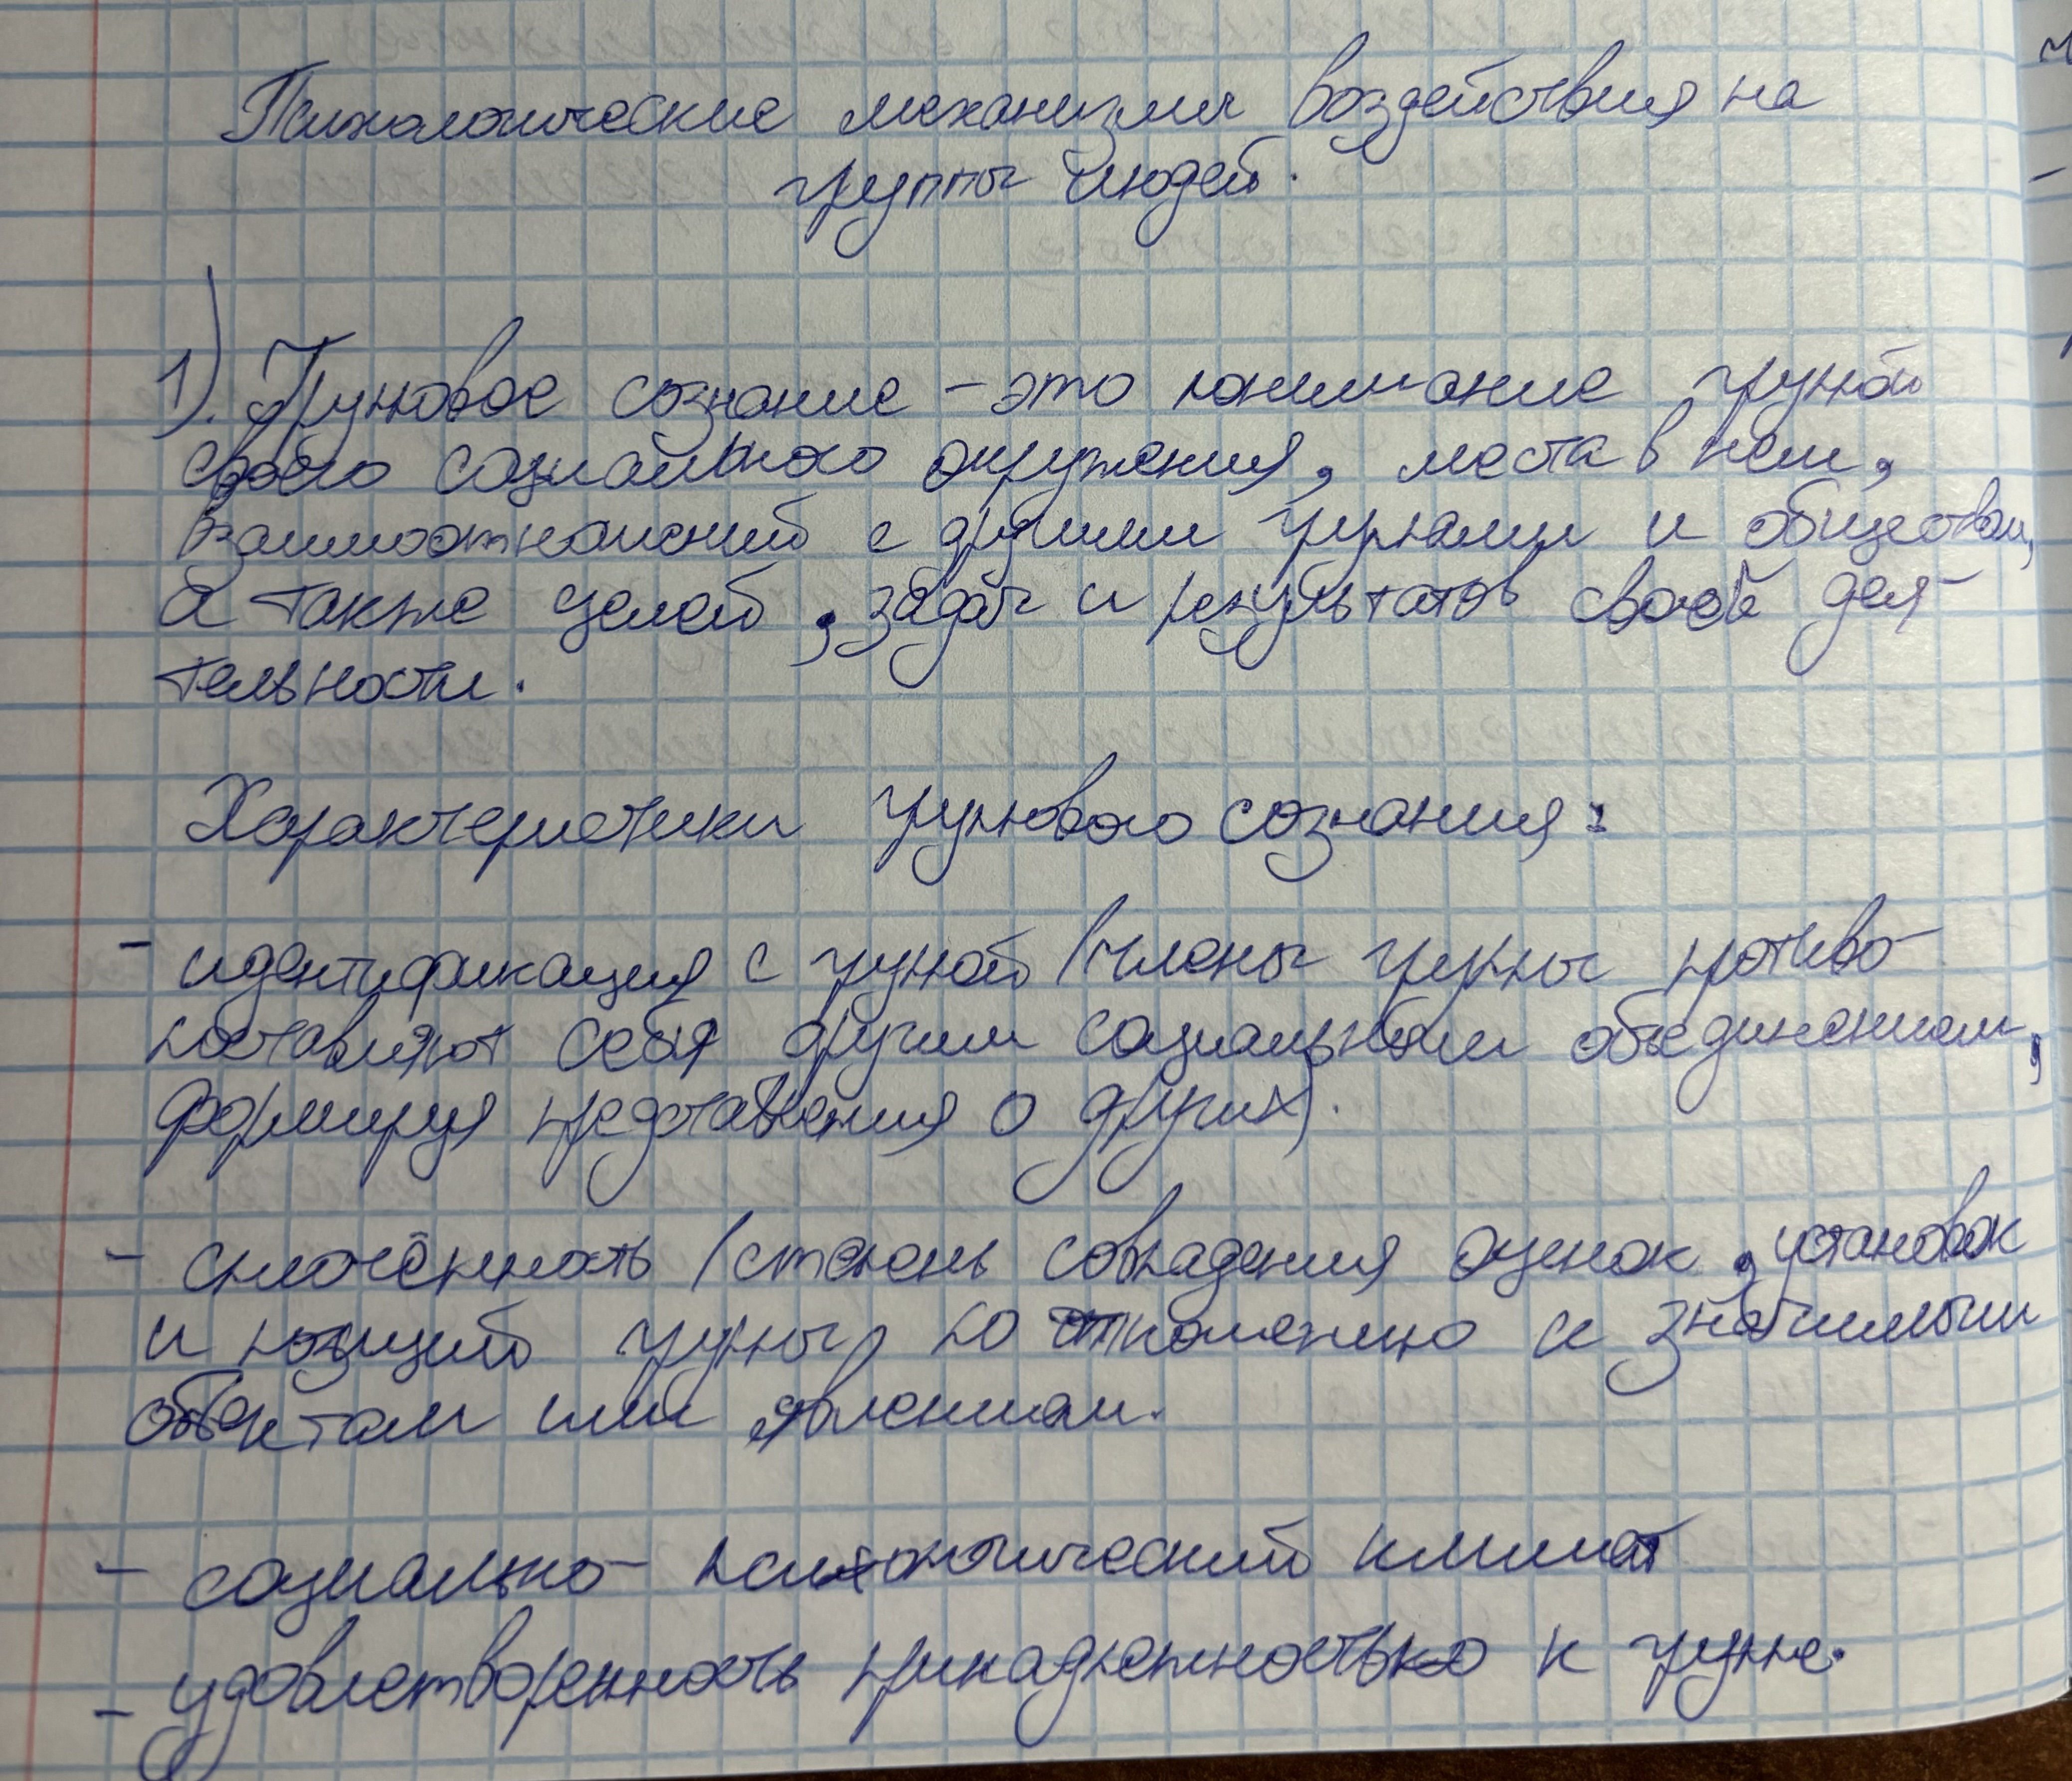 Психологические механизмы воздействия на
группы людей.
1). Групповое сознание - это понимание группой
своего социального окружения, места в нем,
взаимоотношений с другими группами и обществом,
а также целей, задач и результатов своей дея-
тельности.
Характеристики группового сознания:
- идентификация с группой (члены группы противо-
поставляют себя другим социальным объединениям,
формируя представления о других).
- сплочённость (степень совпадения оценок, установок
и позиций группы по отношению к значимым
объектам или явлениям.
- социально-психологический климат
- удовлетворенность принадлежностью к группе.